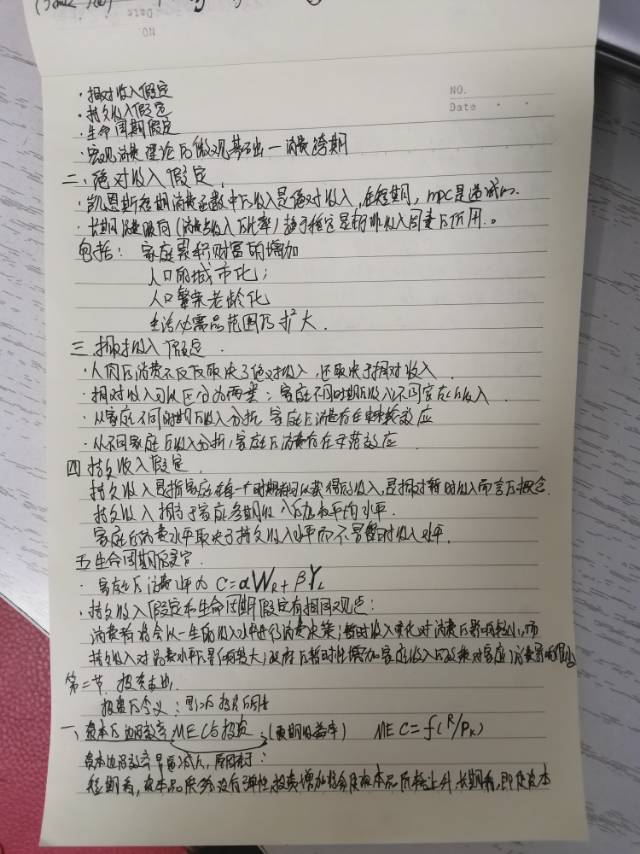 NO.
Date
· 相对收入假定
· 持久收入假定
· 生命周期假定
· 宏观消费理论的微观基础—消费跨期
二、绝对收入假定
· 凯恩斯短期消费函数中的收入是绝对收入,在短期,MPC是递减的.
· 长期消费倾向(消费占收入的比率)趋于稳定是 非收入因素的作用。
包括: 家庭累积财富的增加
人口的城市化;
人口 老龄化
生活必需品范围的扩大.
三 相对收入假定.
· 人们的消费不仅仅取决于绝对收入,还取决于相对收入.
· 相对收入可以区分为两类:家庭不同时期的收入不同家庭的收入.
· 从家庭不同时期的收入分析 家庭的消费存在棘轮效应
· 从不同家庭的收入分析,家庭的消费存在示范效应
四 持久收入假定.
持久收入是指家庭在每一个时期都可以获得的收入,是相对暂时收入而言的概念.
持久收入相当于家庭多期收入的加权平均水平.
家庭的消费水平取决于持久收入水平而不是暂时收入水平.
五 生命周期假定.
· 家庭的消费水平为 C=αWR+βYL
· 持久收入假定和生命周期假定有相同观点:
消费者将会以一生的收入水平进行消费决策;暂时收入变化对消费的影响较小,而
持久收入对消费水平的影响较大;政府的暂时性增加家庭收入的政策对家庭消费影响
第二节 投资
投资的含义:
一、资本的边际效率MEC与投资:(预期收益率) MEC=f(R/PK)
资本边际效率是递减的,原因有:
短期看,资本品供给没有弹性,投资增加将会使资本品价格上升.长期看,即使资本